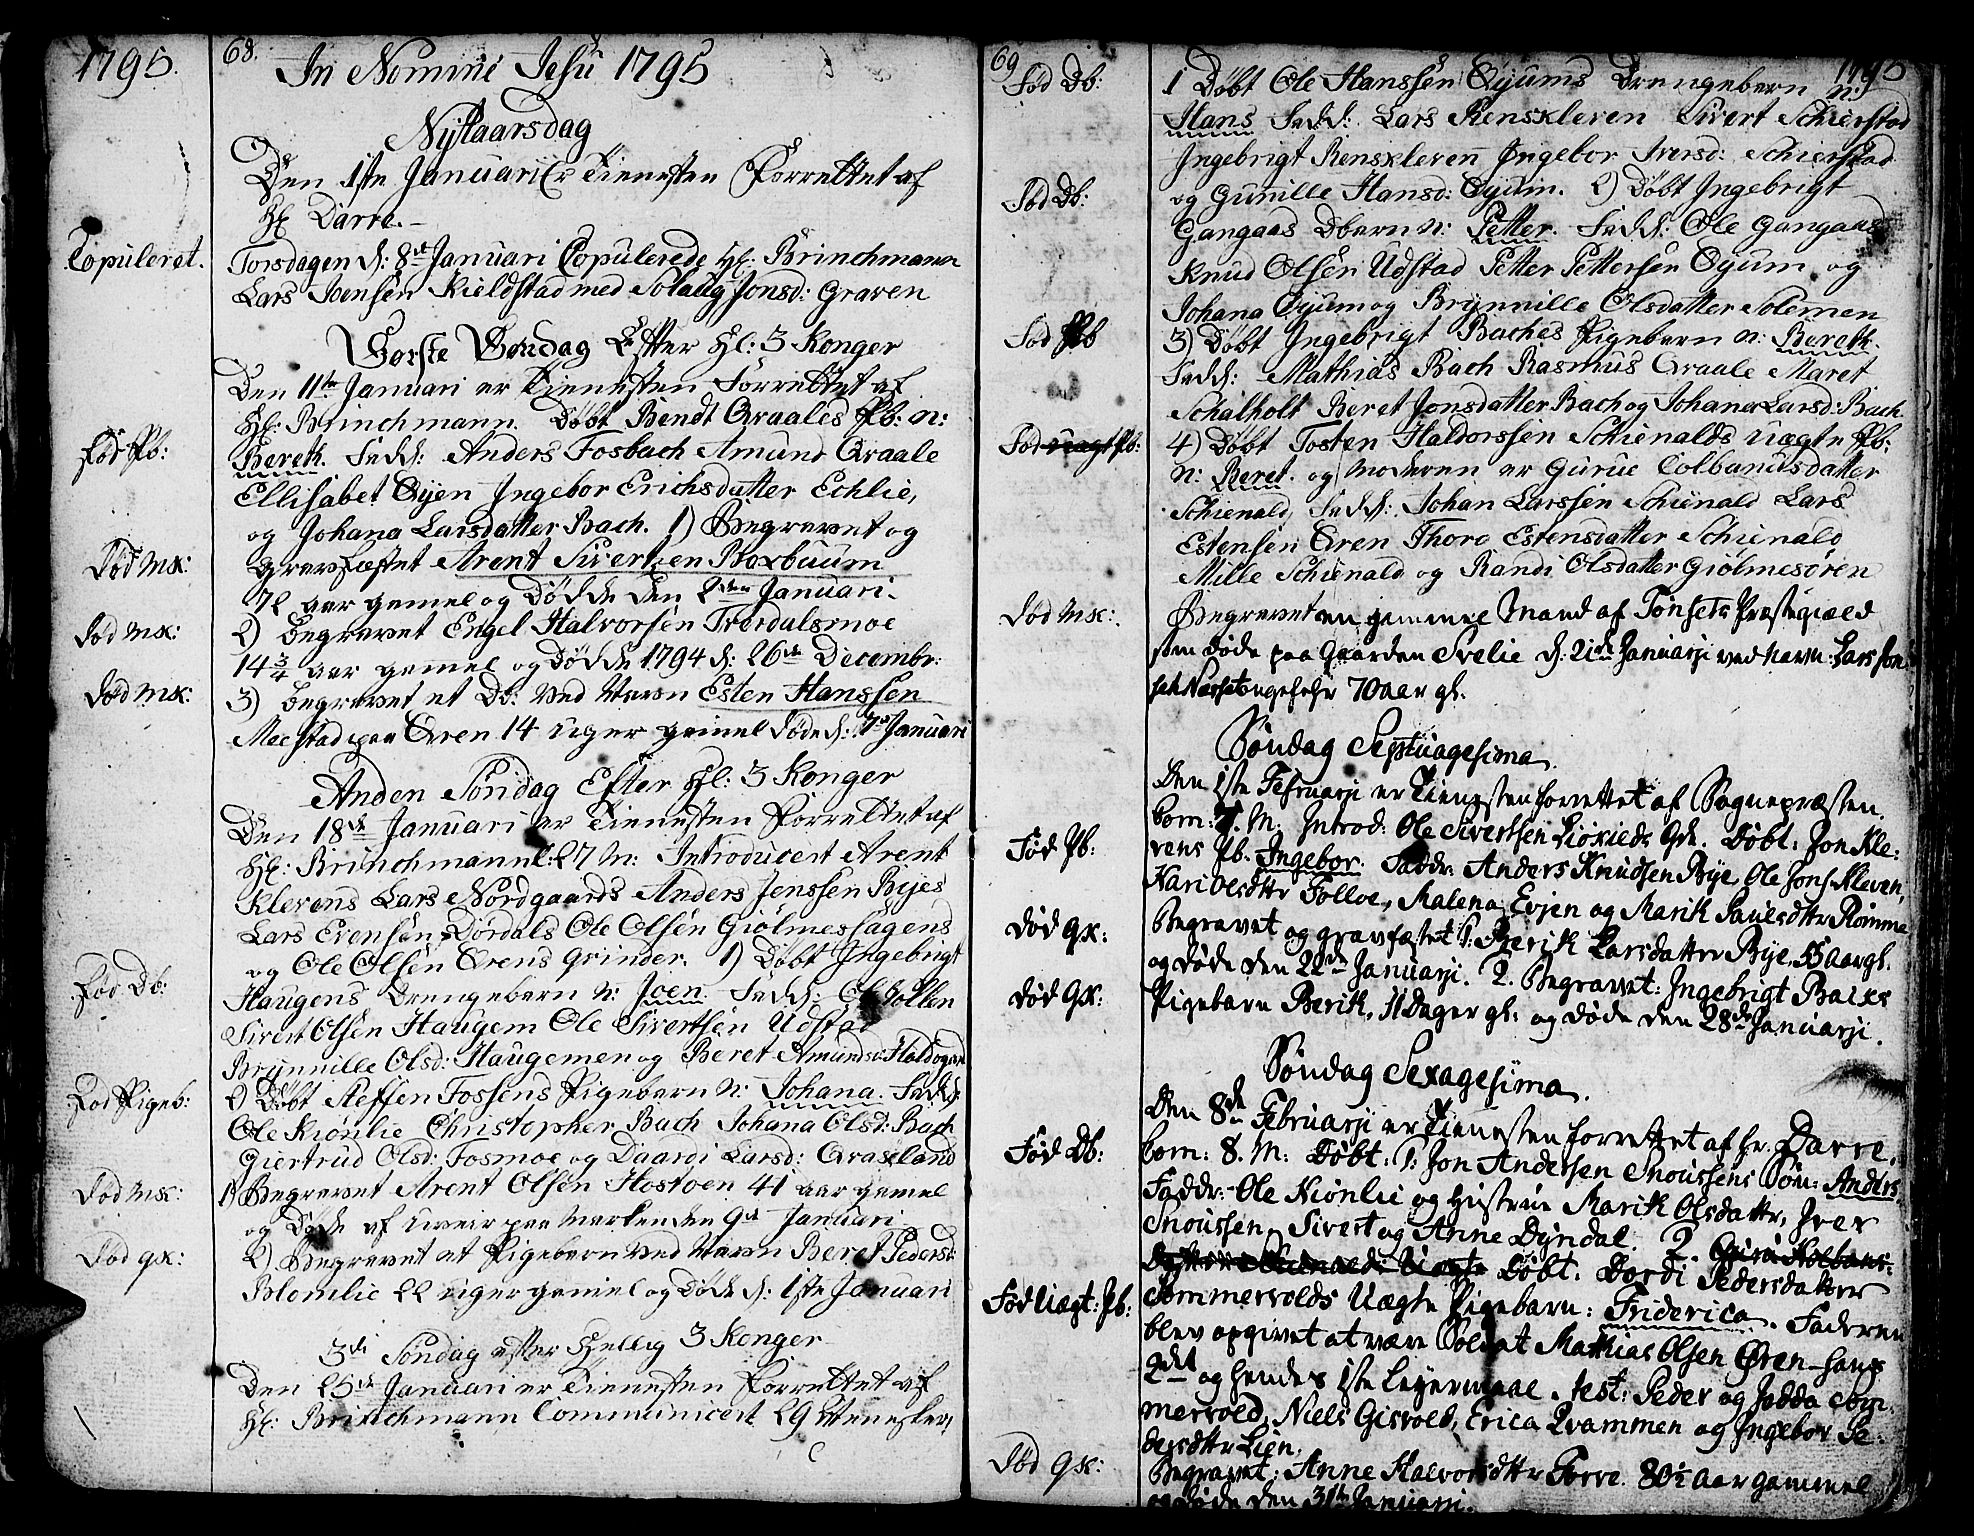 1795.
68.
In Nomine Jesu 1795
Nytaarsdag
Den 1ste Januarii Er Tienesten Forrettet af
Hl Darre.
Copuleret.
Torsdagen d: 8de Januari Copulerede Hl: Brinchmann
Lars Joensen Kieldstad med Solaug Jonsd: Graven
Første Søndag Efter Hl: 3 Konger
Den 11te Januari er Tienesten Forrettet af
Hl: Brinchmann. Døbt Bendt Qraales Pb: n:
Fød Pb:
Bereth. Fadd: Anders Fosbach Amund Qraale
Ellisabet Øyen Ingebor Erichsdatter Echlie,
og Johana Larsdatter Bach. 1) Begravet og
Død MK:
Gravfæstet Arent Sivertsen Boxbuum
72 aar gamel og Døde den 2den Januari.
Død MK:
2) Begravet Engel Halvorsen Trordalsmoe
14 3/4 aar gamel og Døde 1794 d: 26de Decembr:
Død MK:
3) Begravet et Db: ved Navn Esten Hanssen
Meestad paa Øren 14 uger gamel Døde d: 7de Januari
Anden Søndag Efter Hl: 3 Konger
Den 18de Januari er Tienesten Forrettet af
Hl: Brinchmann C: 27 M: Introducert Arent
Klevens Lars Nordgaards Anders Jenssen Byes
Lars Evensen Dørdals Ole Olsen Giølmessagens
og Ole Olsen Ørens qvinder. 1) Døbt Ingebrigt
Fød Db:
Haugens Drengebarn N: Joen. Fadd: Ole Follen
Sivert Olsen Haugem Ole Sivertsen Udstad
Brynnille Olsd: Haugemen og Beret Amundsd:
Fød Pigeb:
2) Døbt Steffen Fossens Pigebarn N: Johana. Fadd:
Ole Kiønlie Christopher Bach Johana Olsd: Bach
Giertrud Olsd: Fosmoe og Daardi Larsd:
Død MK:
1) Begravet Arent Olsen Hostoen 41 aar gamel
og Døde af paa Marken den 9de Januari
Død QK:
2) Begravet et Pigebarn ved Navn Beret Pedersd:
Blomlie 22 uger gamel og Døde d: 1ste Januari
3de Søndag efter Hellig 3 Konger
Den 25de Januari er Tienesten Forrettet af
Hl: Brinchmann Communicert 29 Menesker
69
1795
Fød Db:
1 Døbt Ole Hanssen Øyums Drengebarn n:
Hans Fadd: Lars Renskleven Sivert Schierstad
Ingebrigt Renskleven Ingebor Iversd: Schierstad
Fød Db:
og Gunille Hansd: Øyum. 2) Døbt Ingebrigt
Gangaas Dbarn N: Petter. Fadd: Ole Gangaas
Knud Olsen Udstad Petter Pettersen Øyum og
Johana Øyum og Brynnille Olsdatter Solemen
Fød Pb
3) Døbt Ingebrigt Baches Pigebarn N: Bereth.
Fadd: Mathias Bach Rasmus Qraale Maret
Schalholt Beret Jonsdatter Bach og Johana Larsd: Bach.
Fød uægt Pb:
4) Døbt Tosten Haldorssen Schienalds uægte Pb:
N: Beret. og Moderen er Gurue Colbanusdatter
Schienald, Fadd: Johan Larssen Schienald Lars
Estensen Øren Thore Estensdatter Schienald
Mille Schienald og Randi Olsdatter Giølmesøren
Død MK:
Begravet en gammel Mand af Tønsets Præstegield
som døde paa Gaarden Svelie d: 21de Januarji ved Navn: Lars Jon
sen Nasset ongefehr 70 aar gl.
Søndag Septuagesima.
Den 1ste Februarji er Tienesten forrettet af Sognepræsten.
Com: 7. M: Introd: Ole Sivertsen Qde. Døbt: Jon Kle=
Fød Pb:
vens Pb. Ingebor. Faddr: Anders Knudsen Bye, Ole Jons: Kleven,
Kari Olsdttr Folloe, Malena Evjen og Marit Paulsdttr Romme
Død QK:
Begravet og gravfæstet: 1. Berith Larsdatter Bye, 55 aar gl.
og døde den 22de Januarji. 2. Begravet: Ingebrigt Baches
Død QK:
Pigebarn Berith, 11 Dager gl: og døde den 28de Januarji.
Søndag Sexagesima.
Den 8de Februarji er Tienesten forrettet af hr. Darre.
Fød Db:
Com: 8. M: Døbt: 1: Jon Andersen Snoussens Søn: Anders,
Faddr: Ole Kiønlie og Hustrue Marith Olsdattr, Iver
Snoussen, Sivert og Anne Dyndal. 2. Guru Kolbans=
Døbt. Dordi Pedersdatter
Fød Uægt: Pb:
Sommervolds Uægte Pigebarn: Friderica. Faderen
blev opgivet at være Soldat Mathias Olsen Øren hans
2det og hendes 1ste Leyermaal. Test: Peder og Jedda Som=
mervold, Niels Gisvold, Erica Qvammen og Ingebor Pe=
dersdttr Lien.
Død QK:
Begravet: Anne Halvorsdttr Forre 80½ aar gammel
og døde den 31te Januarji.